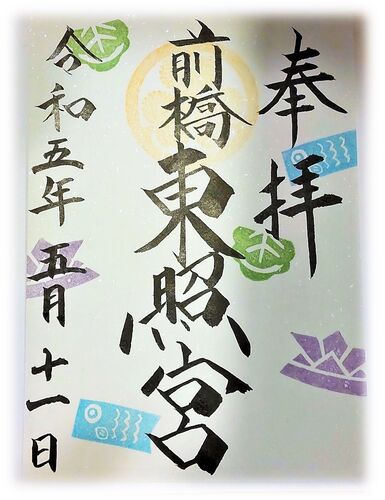 奉拝
前橋東照宮
令和五年五月十一日